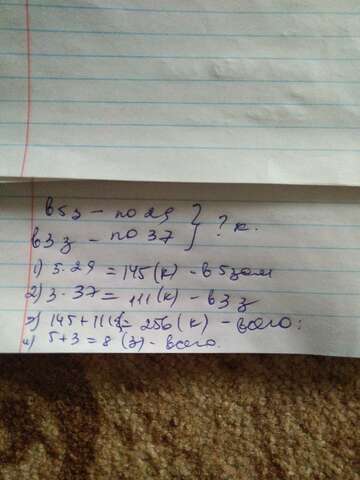 в 5 з – по 29 } ? к.
в 3 з – по 37
1) 5·29 = 145 (к) – в 5 зах
2) 3·37 = 111 (к) – в 3 з
3) 145+111 = 256 (к) – всего:
4) 5+3 = 8 (з) – всего.